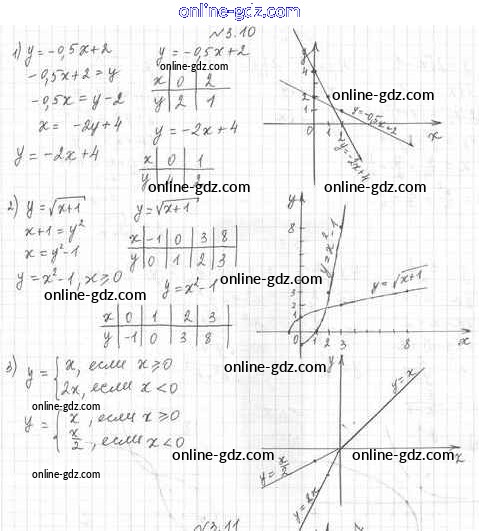 online-gdz.com
№3.10
1) y = -0,5x+2
-0,5x+2 = y
-0,5x = y-2
x = -2y+4
y = -2x+4
y = -0,5x+2
online-gdz.com
x | 0 | 2
y | 2 | 1
online-gdz.com
y = -2x+4
x | 0 | 1
online-gdz.com
y | 4 | 2
y
4
2
1
0 1 2
x
y=-0,5x+2
y=-2x+4
online-gdz.com
online-gdz.com
2) y = √(x+1)
x+1 = y²
x = y²-1
y = x²-1, x≥0
online-gdz.com
y = √(x+1)
x | -1 | 0 | 3 | 8
y | 0 | 1 | 2 | 3
y = x²-1
online-gdz.com
x | 0 | 1 | 2 | 3
y | -1 | 0 | 3 | 8
online-gdz.com
y
8
3
2
1
0 1 2 3 8 x
y = x²-1
y = √(x+1)
online-gdz.com
online-gdz.com
3) y = { x, если x ≥ 0
2x, если x < 0
online-gdz.com
y = { x, если x ≥ 0
x/2, если x < 0
online-gdz.com
online-gdz.com
y
y=x
online-gdz.com
x
y=x/2
y=2x
online-gdz.com
№3.11